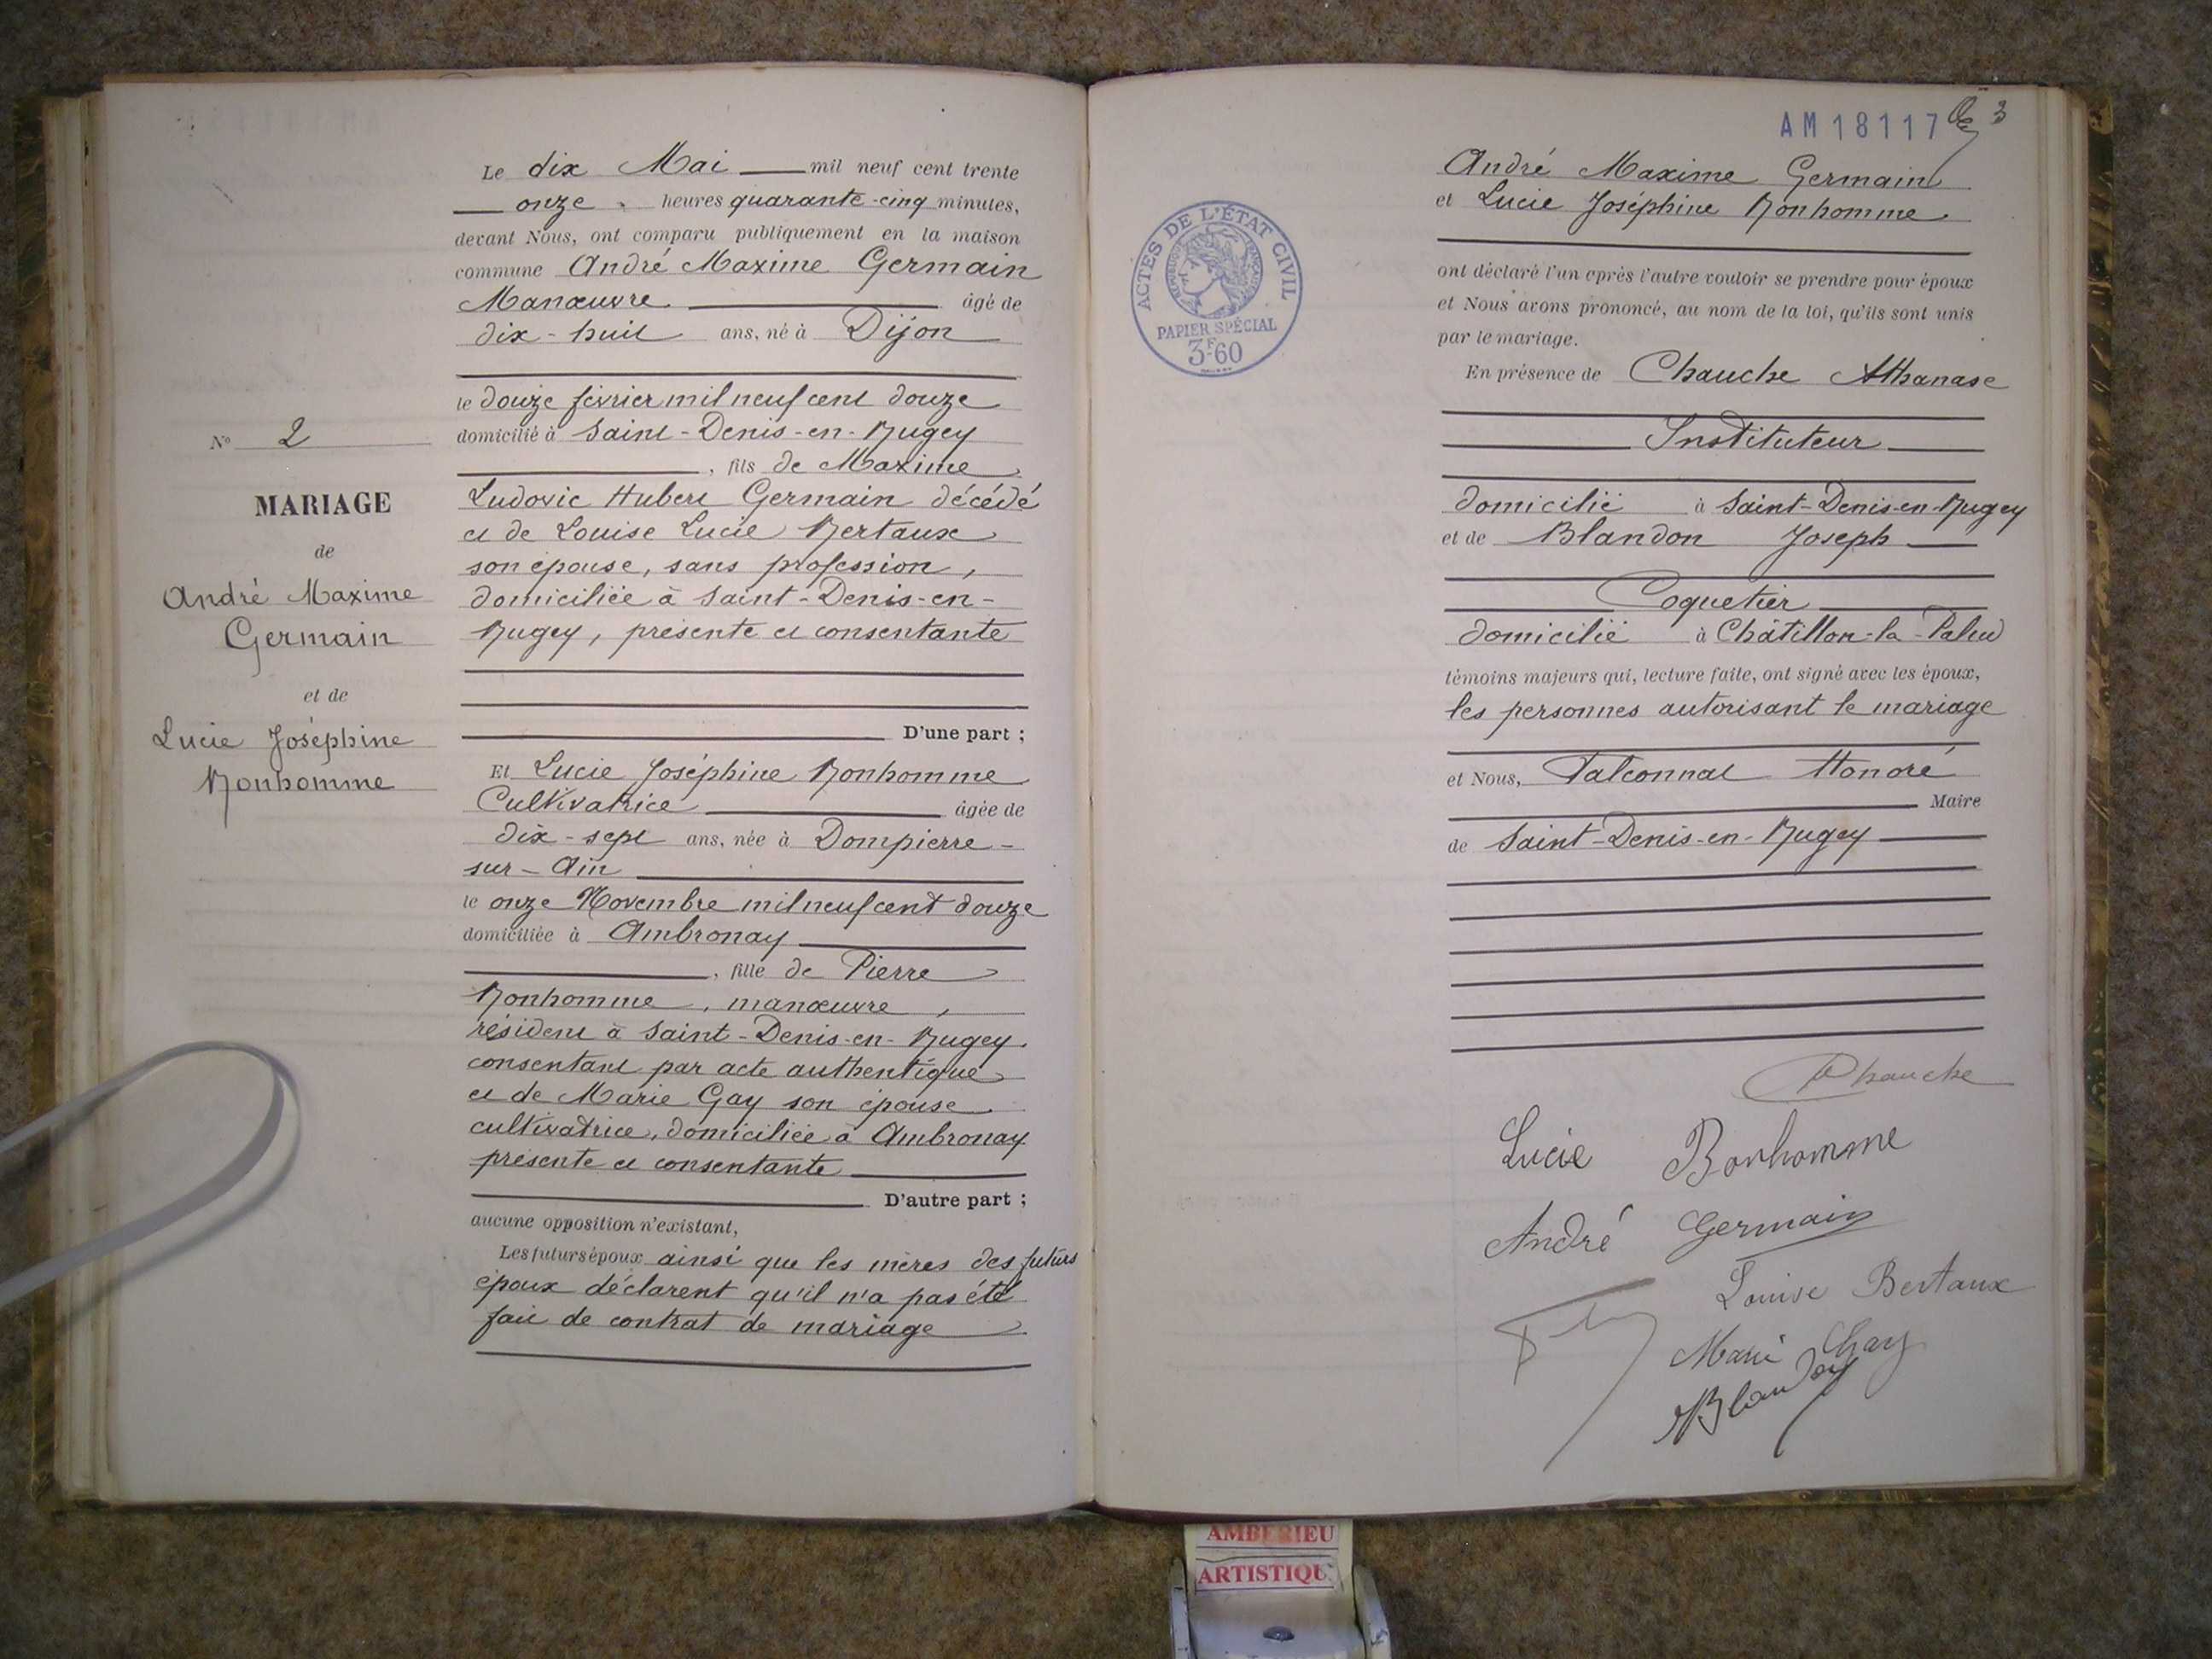 Le dix Mai mil neuf cent trente
onze heures quarante-cinq minutes,
devant Nous, ont comparu publiquement en la maison
commune André Maxime Germain
Manœuvre âgé de
dix-huit ans, né à Dijon
le douze février mil neuf cent douze
domicilié à Saint-Denis-en-Bugey
, fils de Maxime
Ludovic Hubert Germain décédé
et de Louise Lucie Bertaux
son épouse, sans profession,
domiciliée à Saint-Denis-en-
Bugey, présente et consentante
D'une part ;
Et Lucie Joséphine Bonhomme
Cultivatrice âgée de
dix-sept ans, née à Dompierre-
sur-Ain
le onze Novembre mil neuf cent douze
domiciliée à Ambronay
, fille de Pierre
Bonhomme, manœuvre,
résident à Saint-Denis-en-Bugey
consentant par acte authentique
et de Marie Gay son épouse
cultivatrice, domiciliée à Ambronay
présente et consentante
D'autre part ;
aucune opposition n'existant,
Les futurs époux ainsi que les mères des futurs
époux déclarent qu'il n'a pas été
fait de contrat de mariage
N° 2
MARIAGE
de
André Maxime
Germain
et de
Lucie Joséphine
Bonhomme
AM18117
3
André Maxime Germain
et Lucie Joséphine Bonhomme
ont déclaré l'un après l'autre vouloir se prendre pour époux
et Nous avons prononcé, au nom de la loi, qu'ils sont unis
par le mariage.
En présence de Chauche Athanase
Instituteur
domicilié à Saint-Denis-en-Bugey
et de Blandon Joseph
Coquetier
domicilié à Châtillon-la-Palud
témoins majeurs qui, lecture faite, ont signé avec les époux,
les personnes autorisant le mariage
et Nous, Falconnat Honoré
Maire
de Saint-Denis-en-Bugey
ACTES DE L'ÉTAT CIVIL
RÉPUBLIQUE FRANÇAISE
PAPIER SPÉCIAL
3F60
Chauche
Lucie Bonhomme
André Germain
Louise Bertaux
Marie Gay
Blandon
AMBERIEU
ARTISTIQU